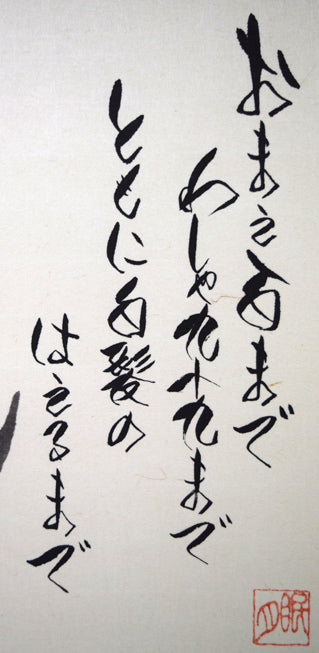 おまえ百まで
わしゃ九十九まで
ともに白髪の
はえるまで